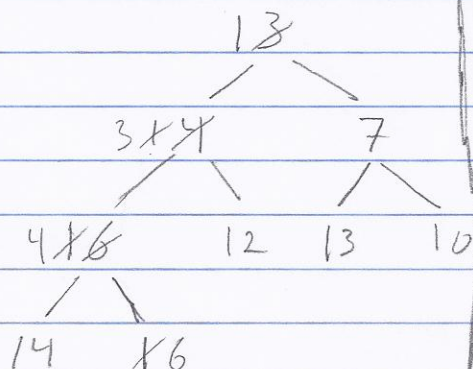 1 3
3 1 4 7
4 1 6 12 13 10
14 1 6